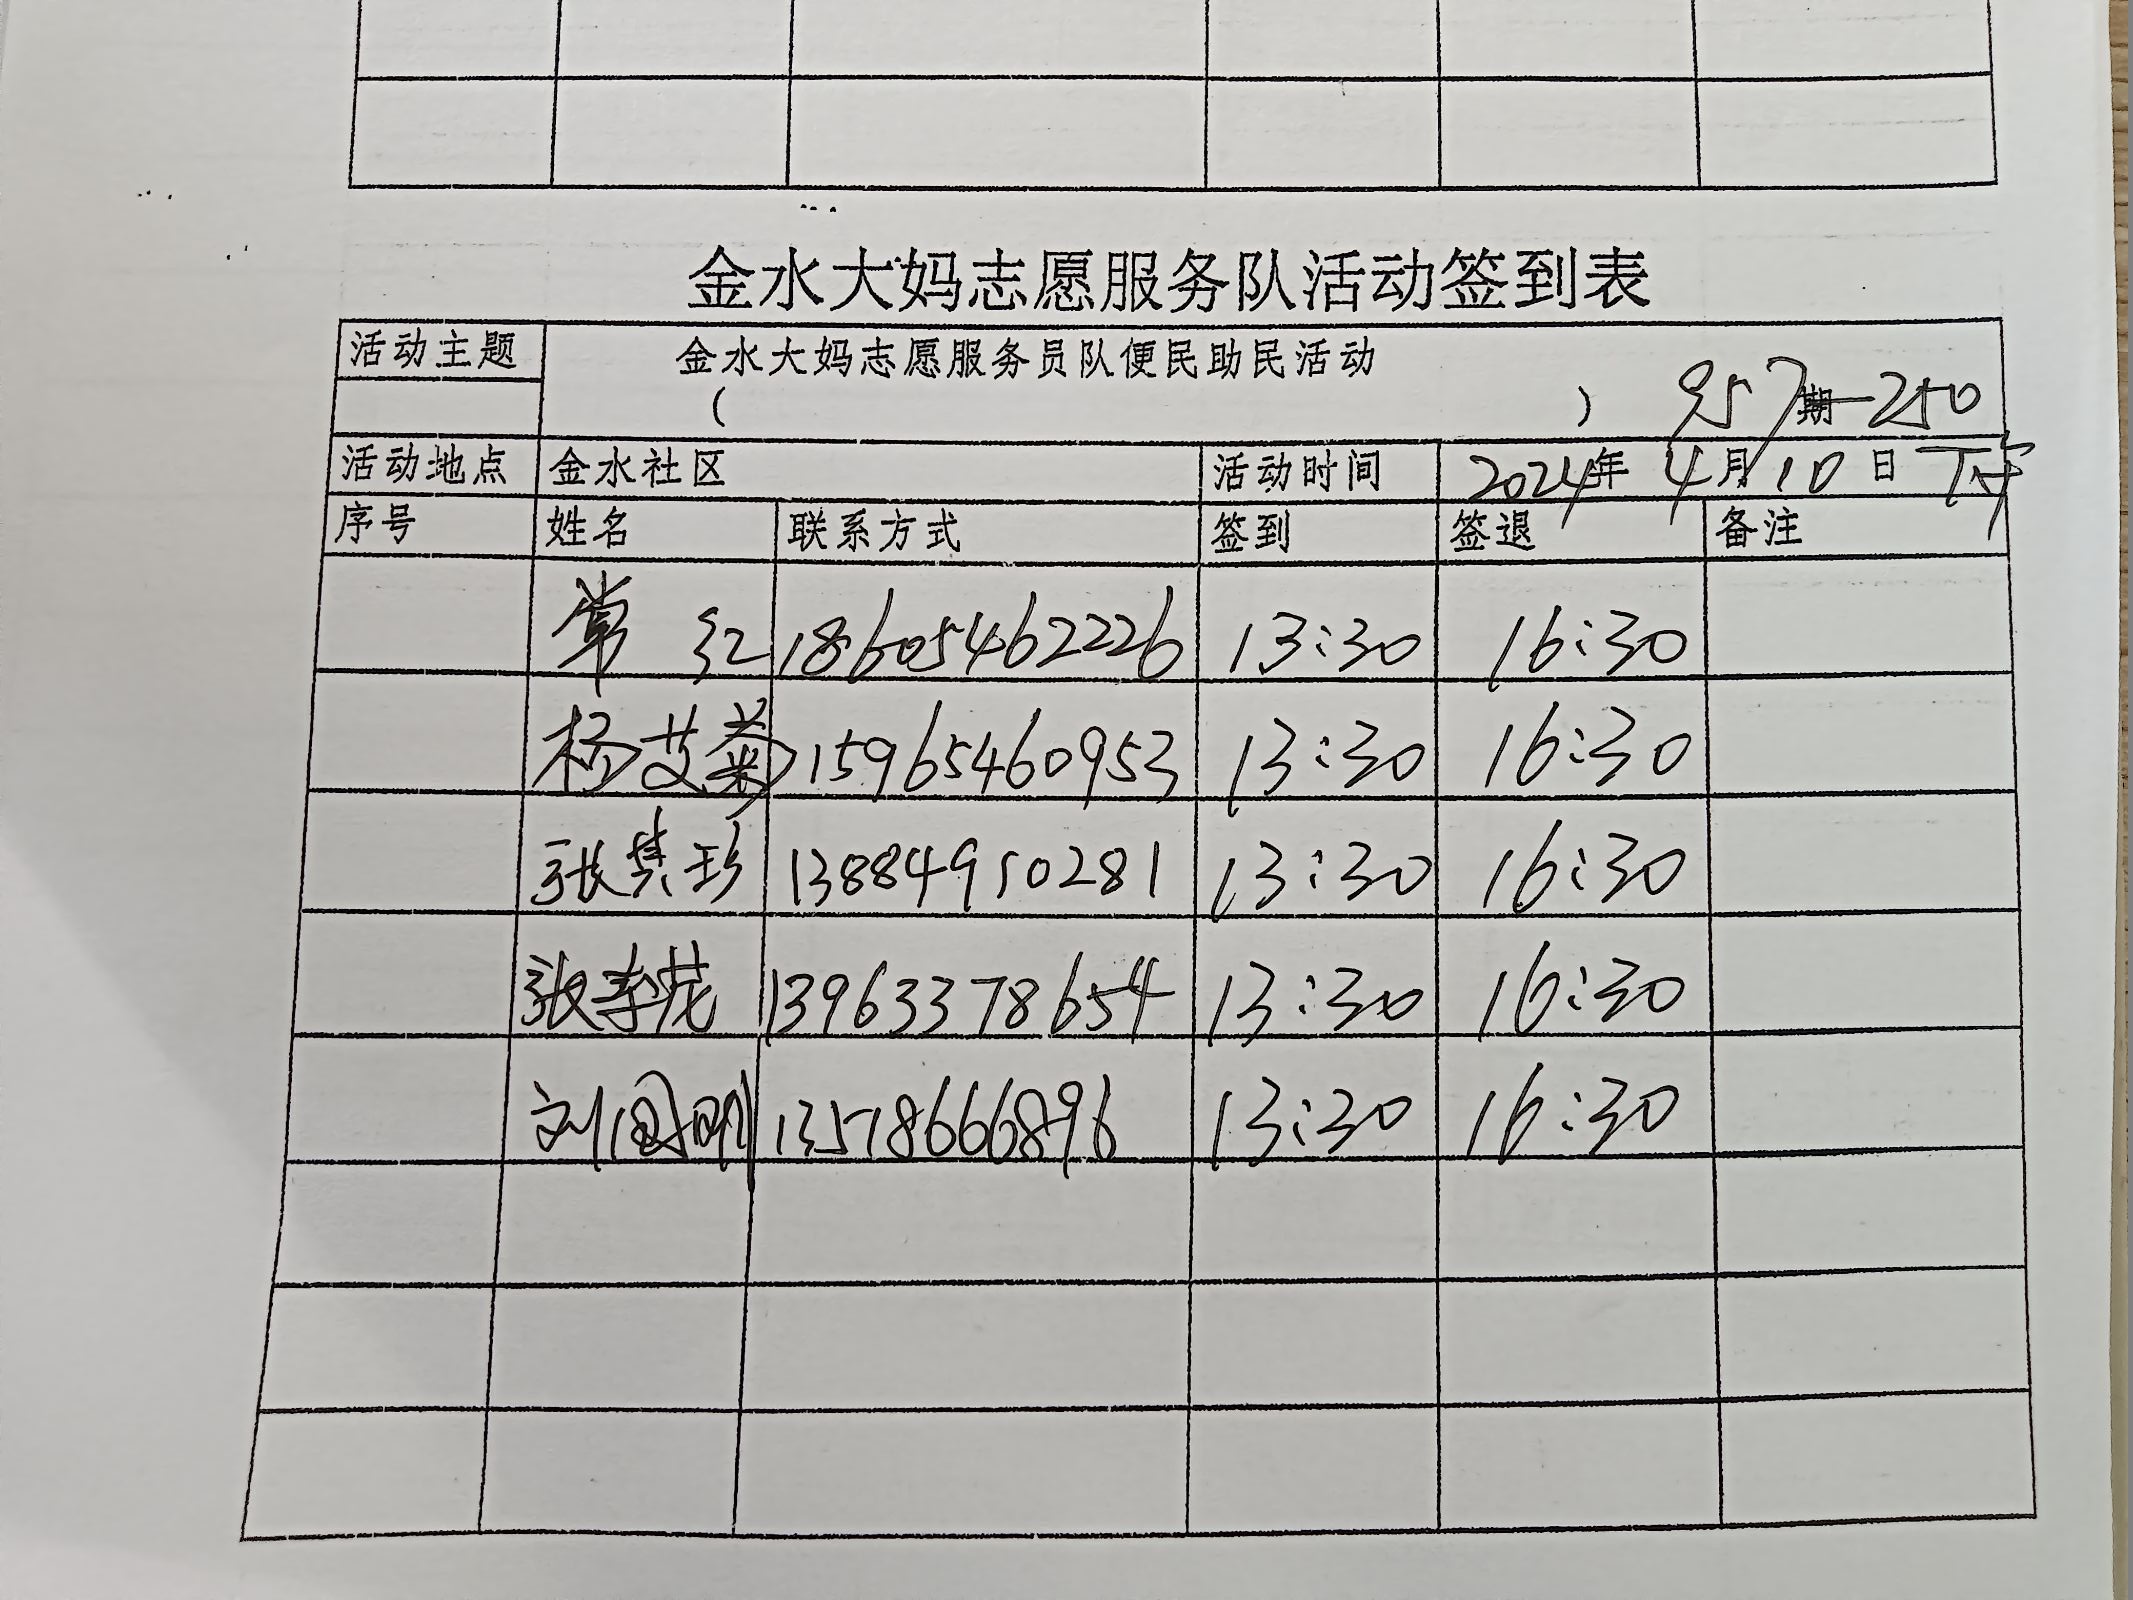 金水大妈志愿服务队活动签到表
活动主题 金水大妈志愿服务员队便民助民活动
( ) 957期—250
活动地点 金水社区 活动时间 2024年4月10日 下午
序号 姓名 联系方式 签到 签退 备注
常红 18605462226 13:30 16:30
杨艾菊 15965460953 13:30 16:30
张其珍 13884950281 13:30 16:30
张孝花 13963378654 13:30 16:30
刘国明 13578666896 13:30 16:30